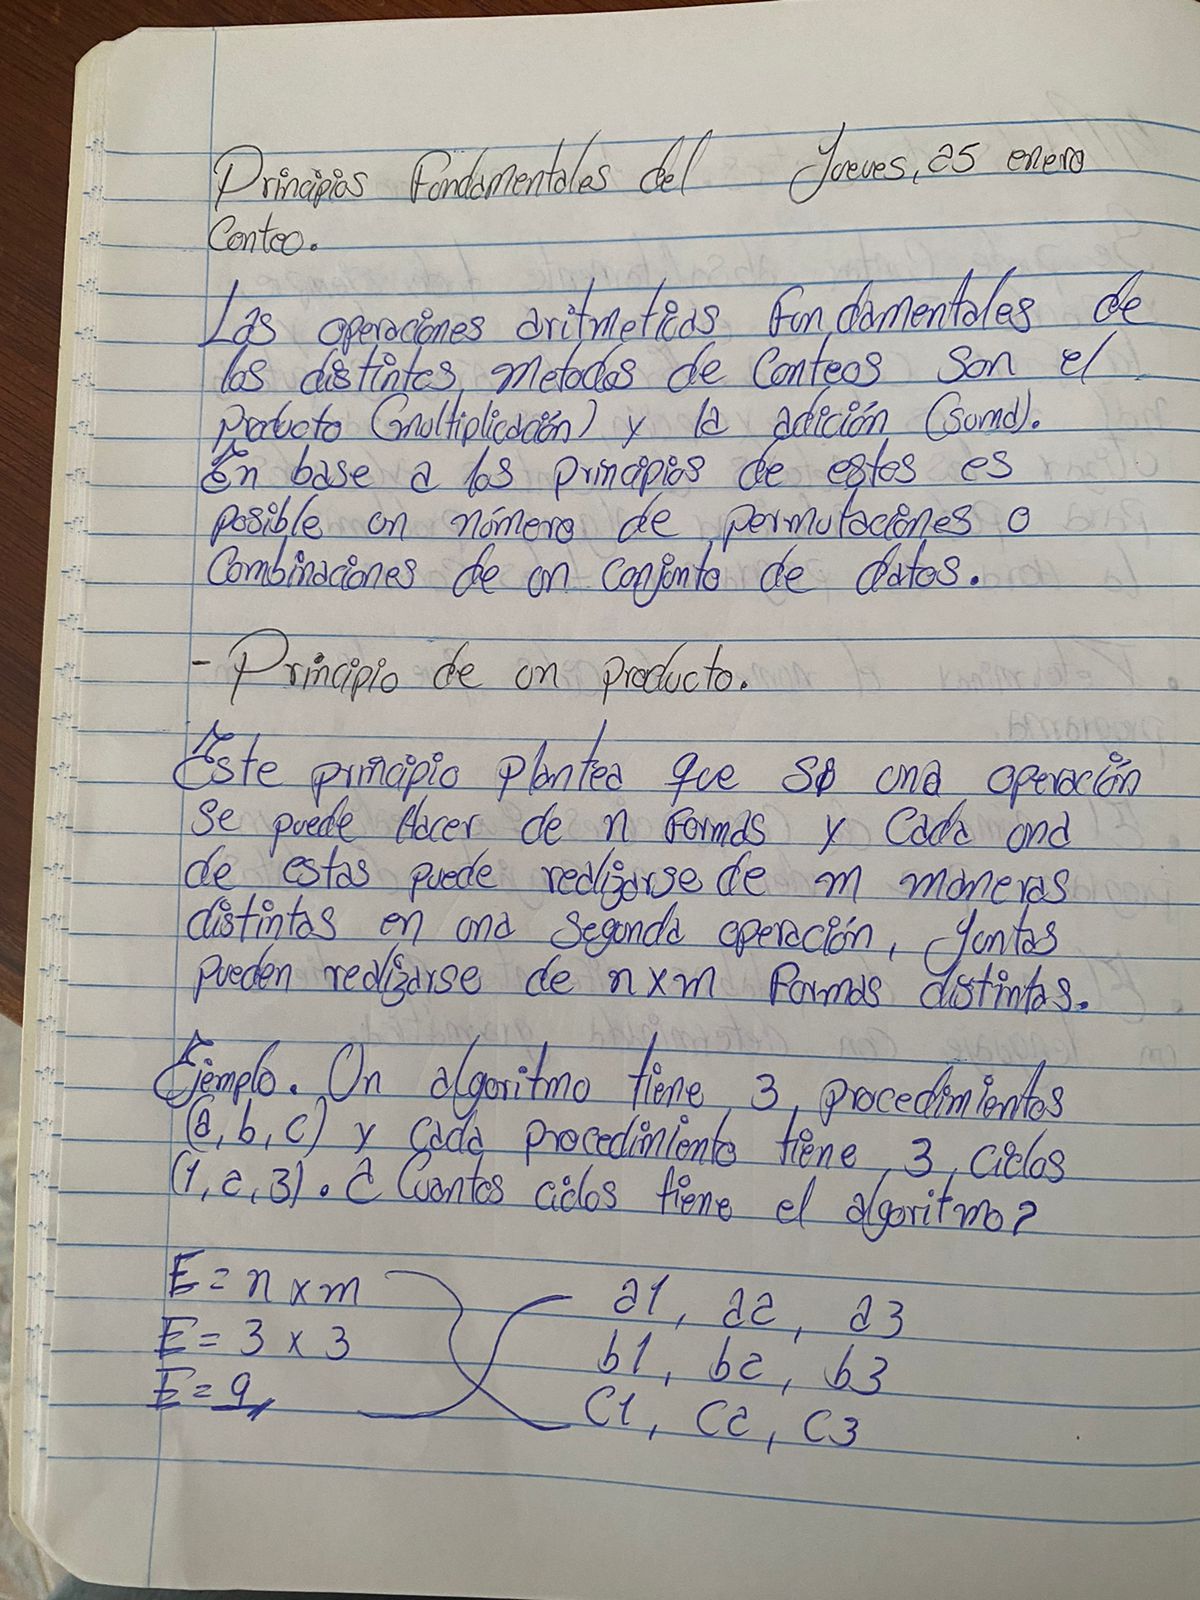 Principios Fundamentales del Jueves, 25 enero
Conteo.
Las operaciones aritmeticas Fundamentales de
los distintos metodos de Conteos Son el
producto (multiplicación) y la adición (suma).
En base a los principios de estos es
posible un número de permutaciones o
Combinaciones de un conjunto de datos.
- Principio de un producto.
Este principio plantea que si una operación
se puede Hacer de n Formas y Cada una
de estas puede realizarse de m maneras
distintas en una segunda operación, juntas
pueden realizarse de n x m Formas distintas.
Ejemplo. Un algoritmo tiene 3 procedimientos
(a, b, c) y cada procedimiento tiene 3 ciclos
(1, 2, 3). ¿Cuantos ciclos tiene el algoritmo?
E = n x m
a1, a2, a3
E = 3 x 3
b1, b2, b3
E = 9
C1, C2, C3